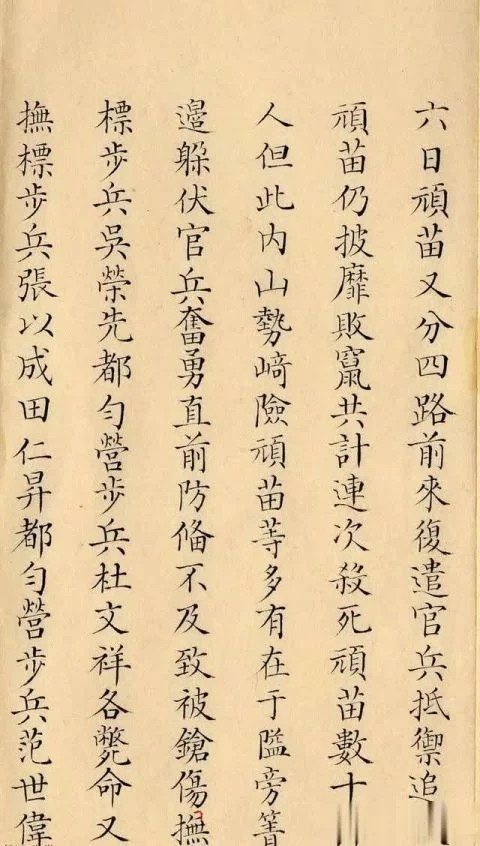 六日頑苗又分四路前來復遣官兵抵禦追
頑苗仍披靡敗竄共計連次殺死頑苗數十
人但此内山勢﨑險頑苗等多有在于隘旁箐
邉躲伏官兵奮勇直前防俻不及致被鎗傷撫
標步兵吳榮先都勻營步兵杜文祥各斃命又
撫標步兵張以成田仁昇都勻營步兵范世偉